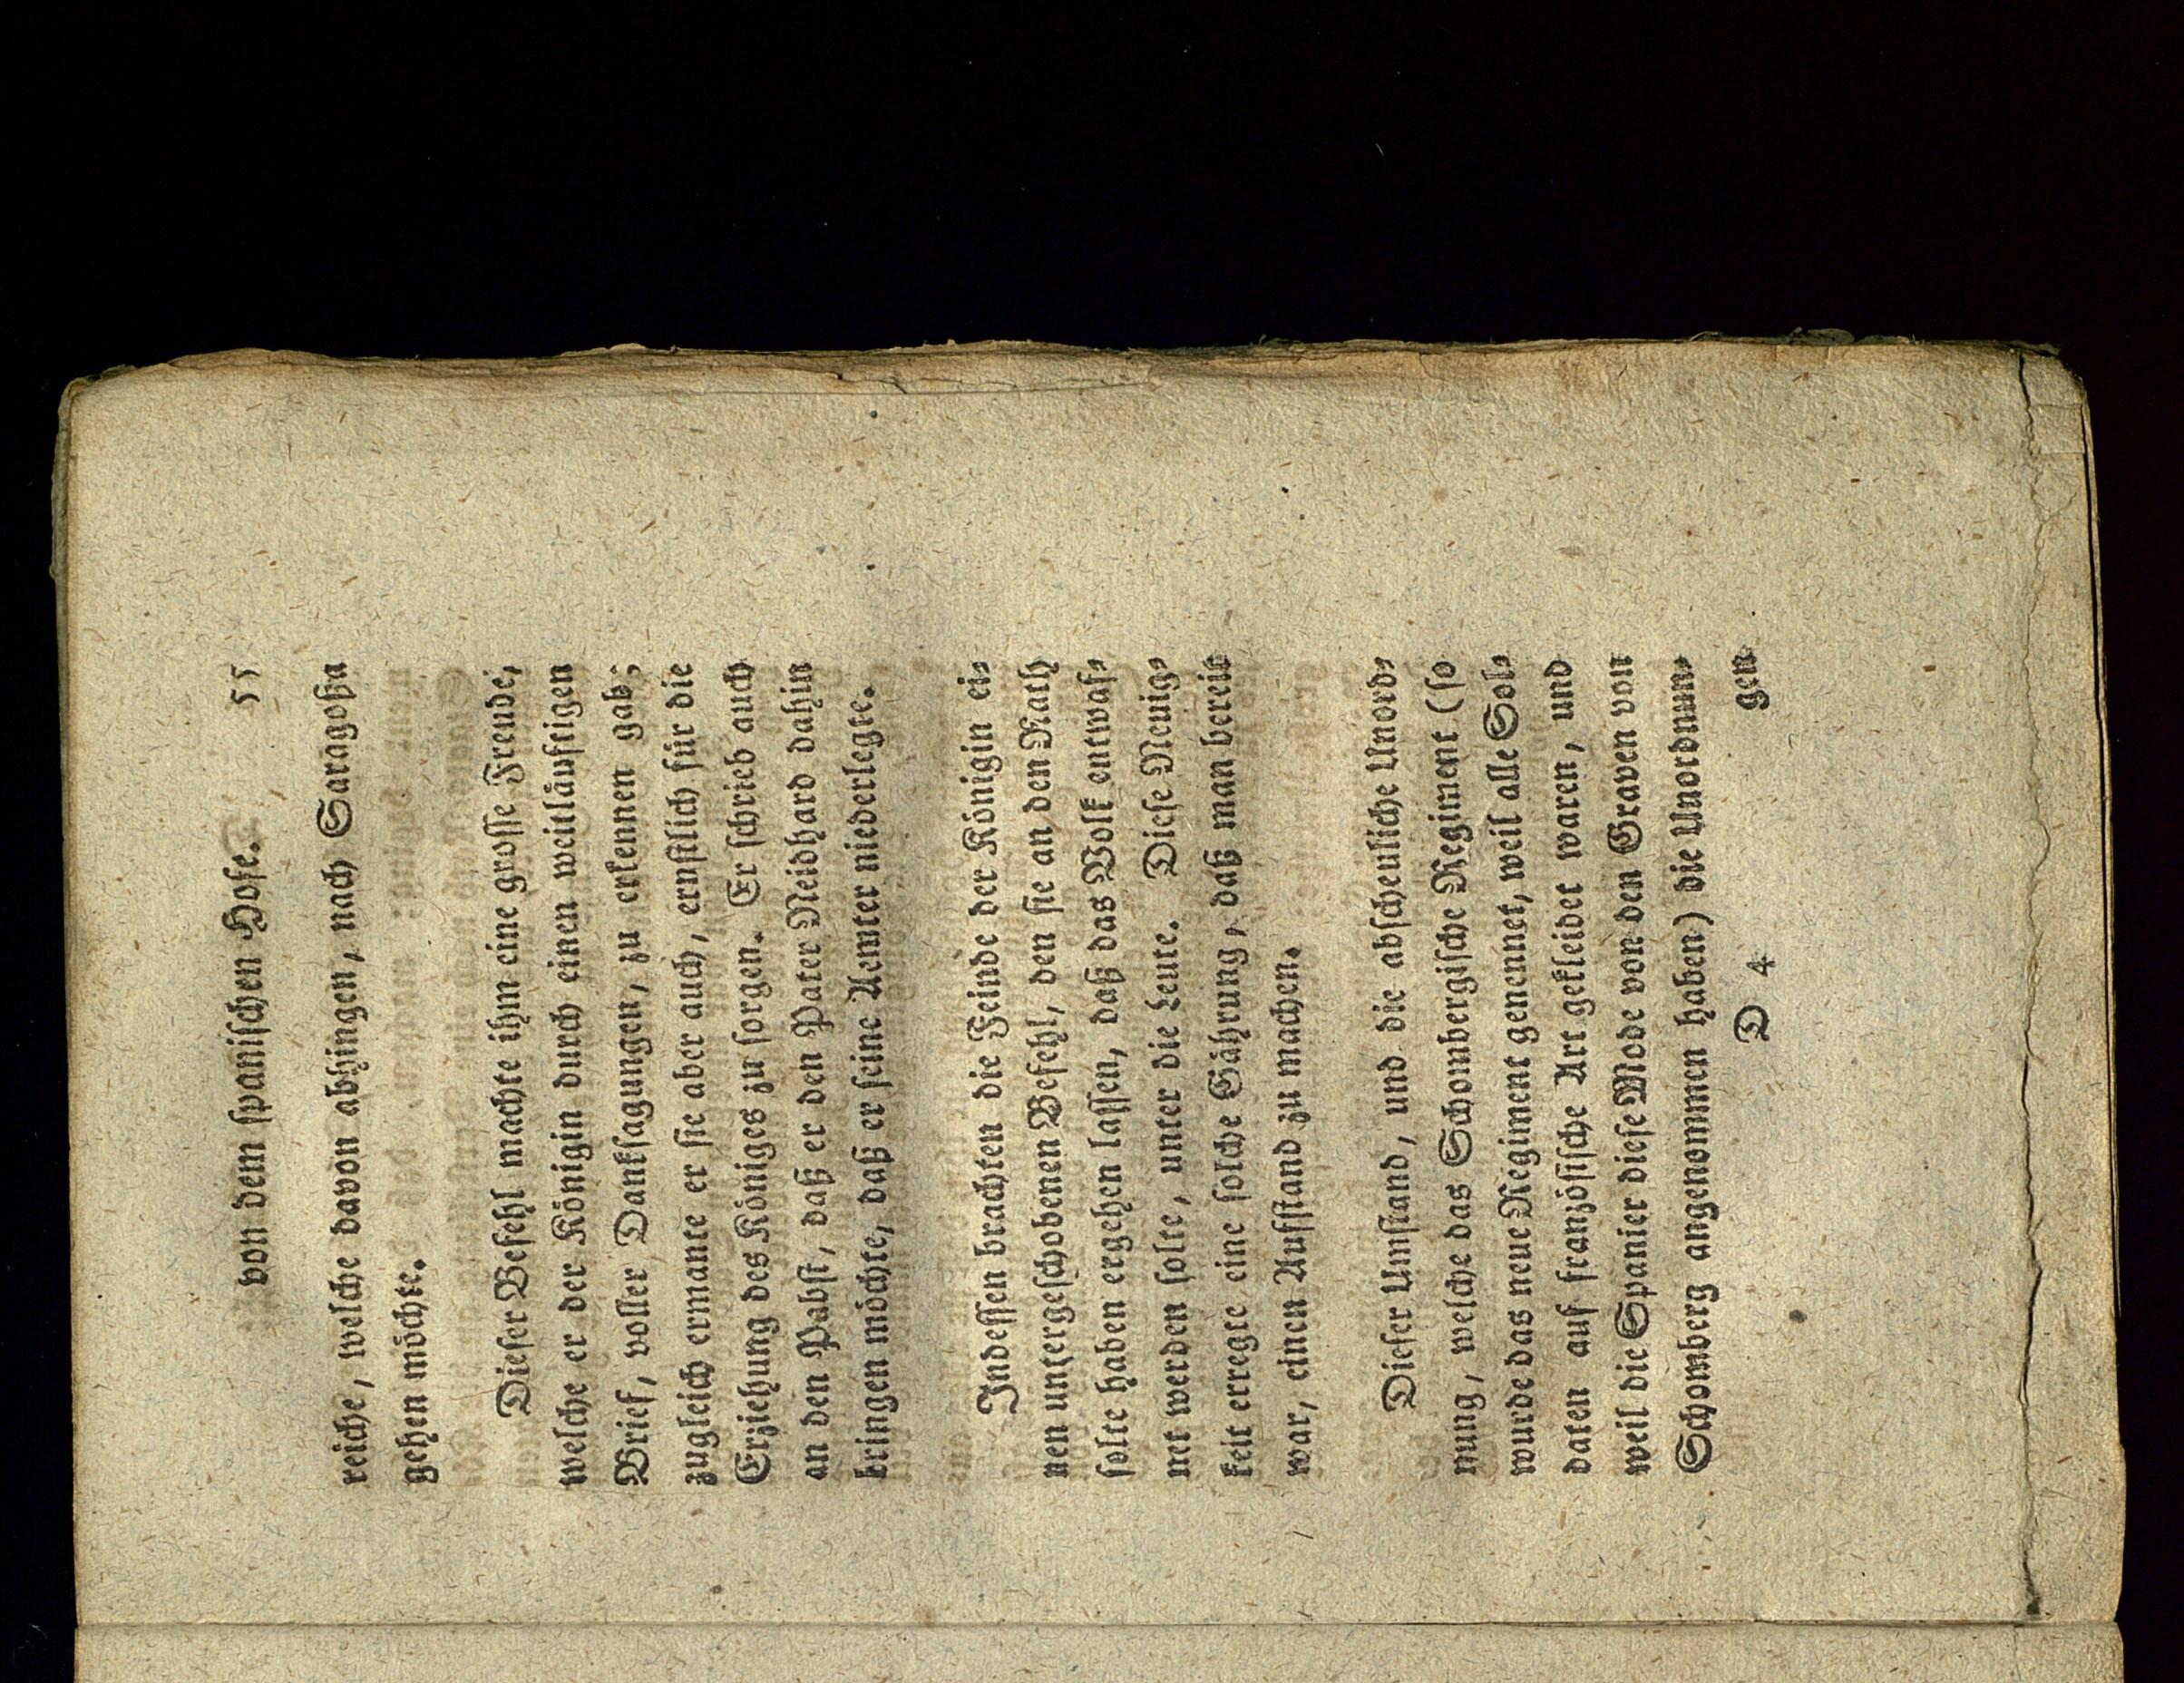 von dem ſpaniſchen Hofe. 55
reiche, welche davon abhingen, nach Saragoßa
gehen möchte.
Dieſer Befehl machte ihm eine groſſe Freude,
welche er der Königin durch einen weitläuftigen
Brief, voller Dankſagungen, zu erkennen gab;
zugleich ermante er ſie aber auch, ernſtlich für die
Erziehung des Königes zu ſorgen. Er ſchrieb auch
an den Pabſt, daß er den Pater Neidhard dahin
bringen möchte, daß er ſeine Aemter niederlegte.
Indeſſen brachten die Feinde der Königin ei-
nen untergeſchobenen Befehl, den ſie an den Rath
ſolte haben ergehen laſſen, daß das Volk entwaf-
net werden ſolte, unter die Leute. Dieſe Neuig-
keit erregte eine ſolche Gährung, daß man bereit
war, einen Aufſtand zu machen.
Dieſer Umſtand, und die abſcheuliche Unord-
nung, welche das Schombergiſche Regiment (ſo
wurde das neue Regiment genennet, weil alle Sol-
daten auf franzöſiſche Art gekleidet waren, und
weil die Spanier dieſe Mode von den Graven von
Schomberg angenommen haben) die Unordnun-
D 4 gen